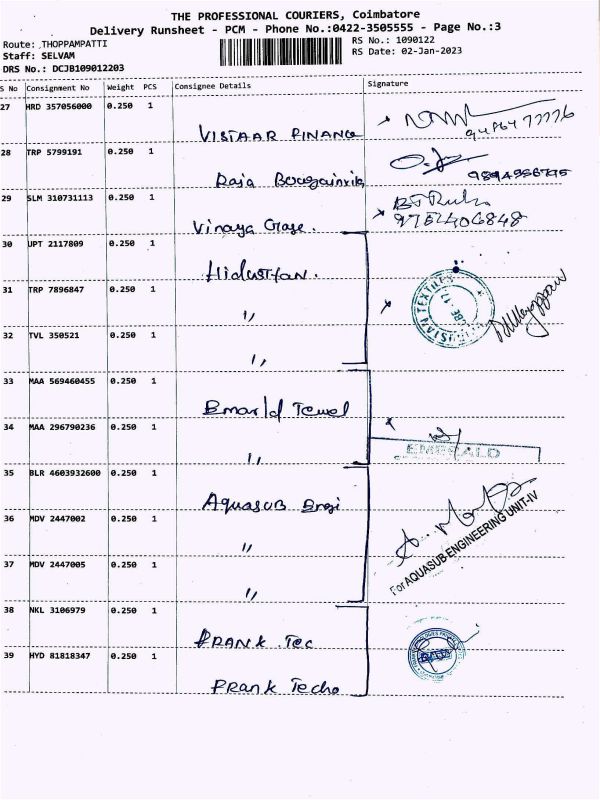 THE PROFESSIONAL COURIERS, Coimbatore
Delivery Runsheet - PCM - Phone No.:0422-3505555 - Page No.:3
Route: ,THOPPAMPATTI
RS No.: 1090122
Staff: SELVAM
RS Date: 02-Jan-2023
DRS No.: DCJB109012203
S No Consignment No Weight PCS Consignee Details Signature
27 HRD 357056000 0.250 1
VISTAAR FINANCE
28 TRP 5799191 0.250 1
Raja
29 SLM 310731113 0.250 1
9751406848
Vinaya
30 UPT 2117809 0.250 1
Hidusthan.
31 TRP 7896847 0.250 1
TEXTILES
CBE - 17
〃
32 TVL 350521 0.250 1
〃
33 MAA 569460455 0.250 1
Emarld Tewel
34 MAA 296790236 0.250 1
EMERALD
〃
35 BLR 4603932600 0.250 1
Aquasub Engi
36 MDV 2447002 0.250 1
〃
For AQUASUB ENGINEERING UNIT-IV
37 MDV 2447005 0.250 1
〃
38 NKL 3106979 0.250 1
PRANK .Tec
39 HYD 81818347 0.250 1
Prank Techo